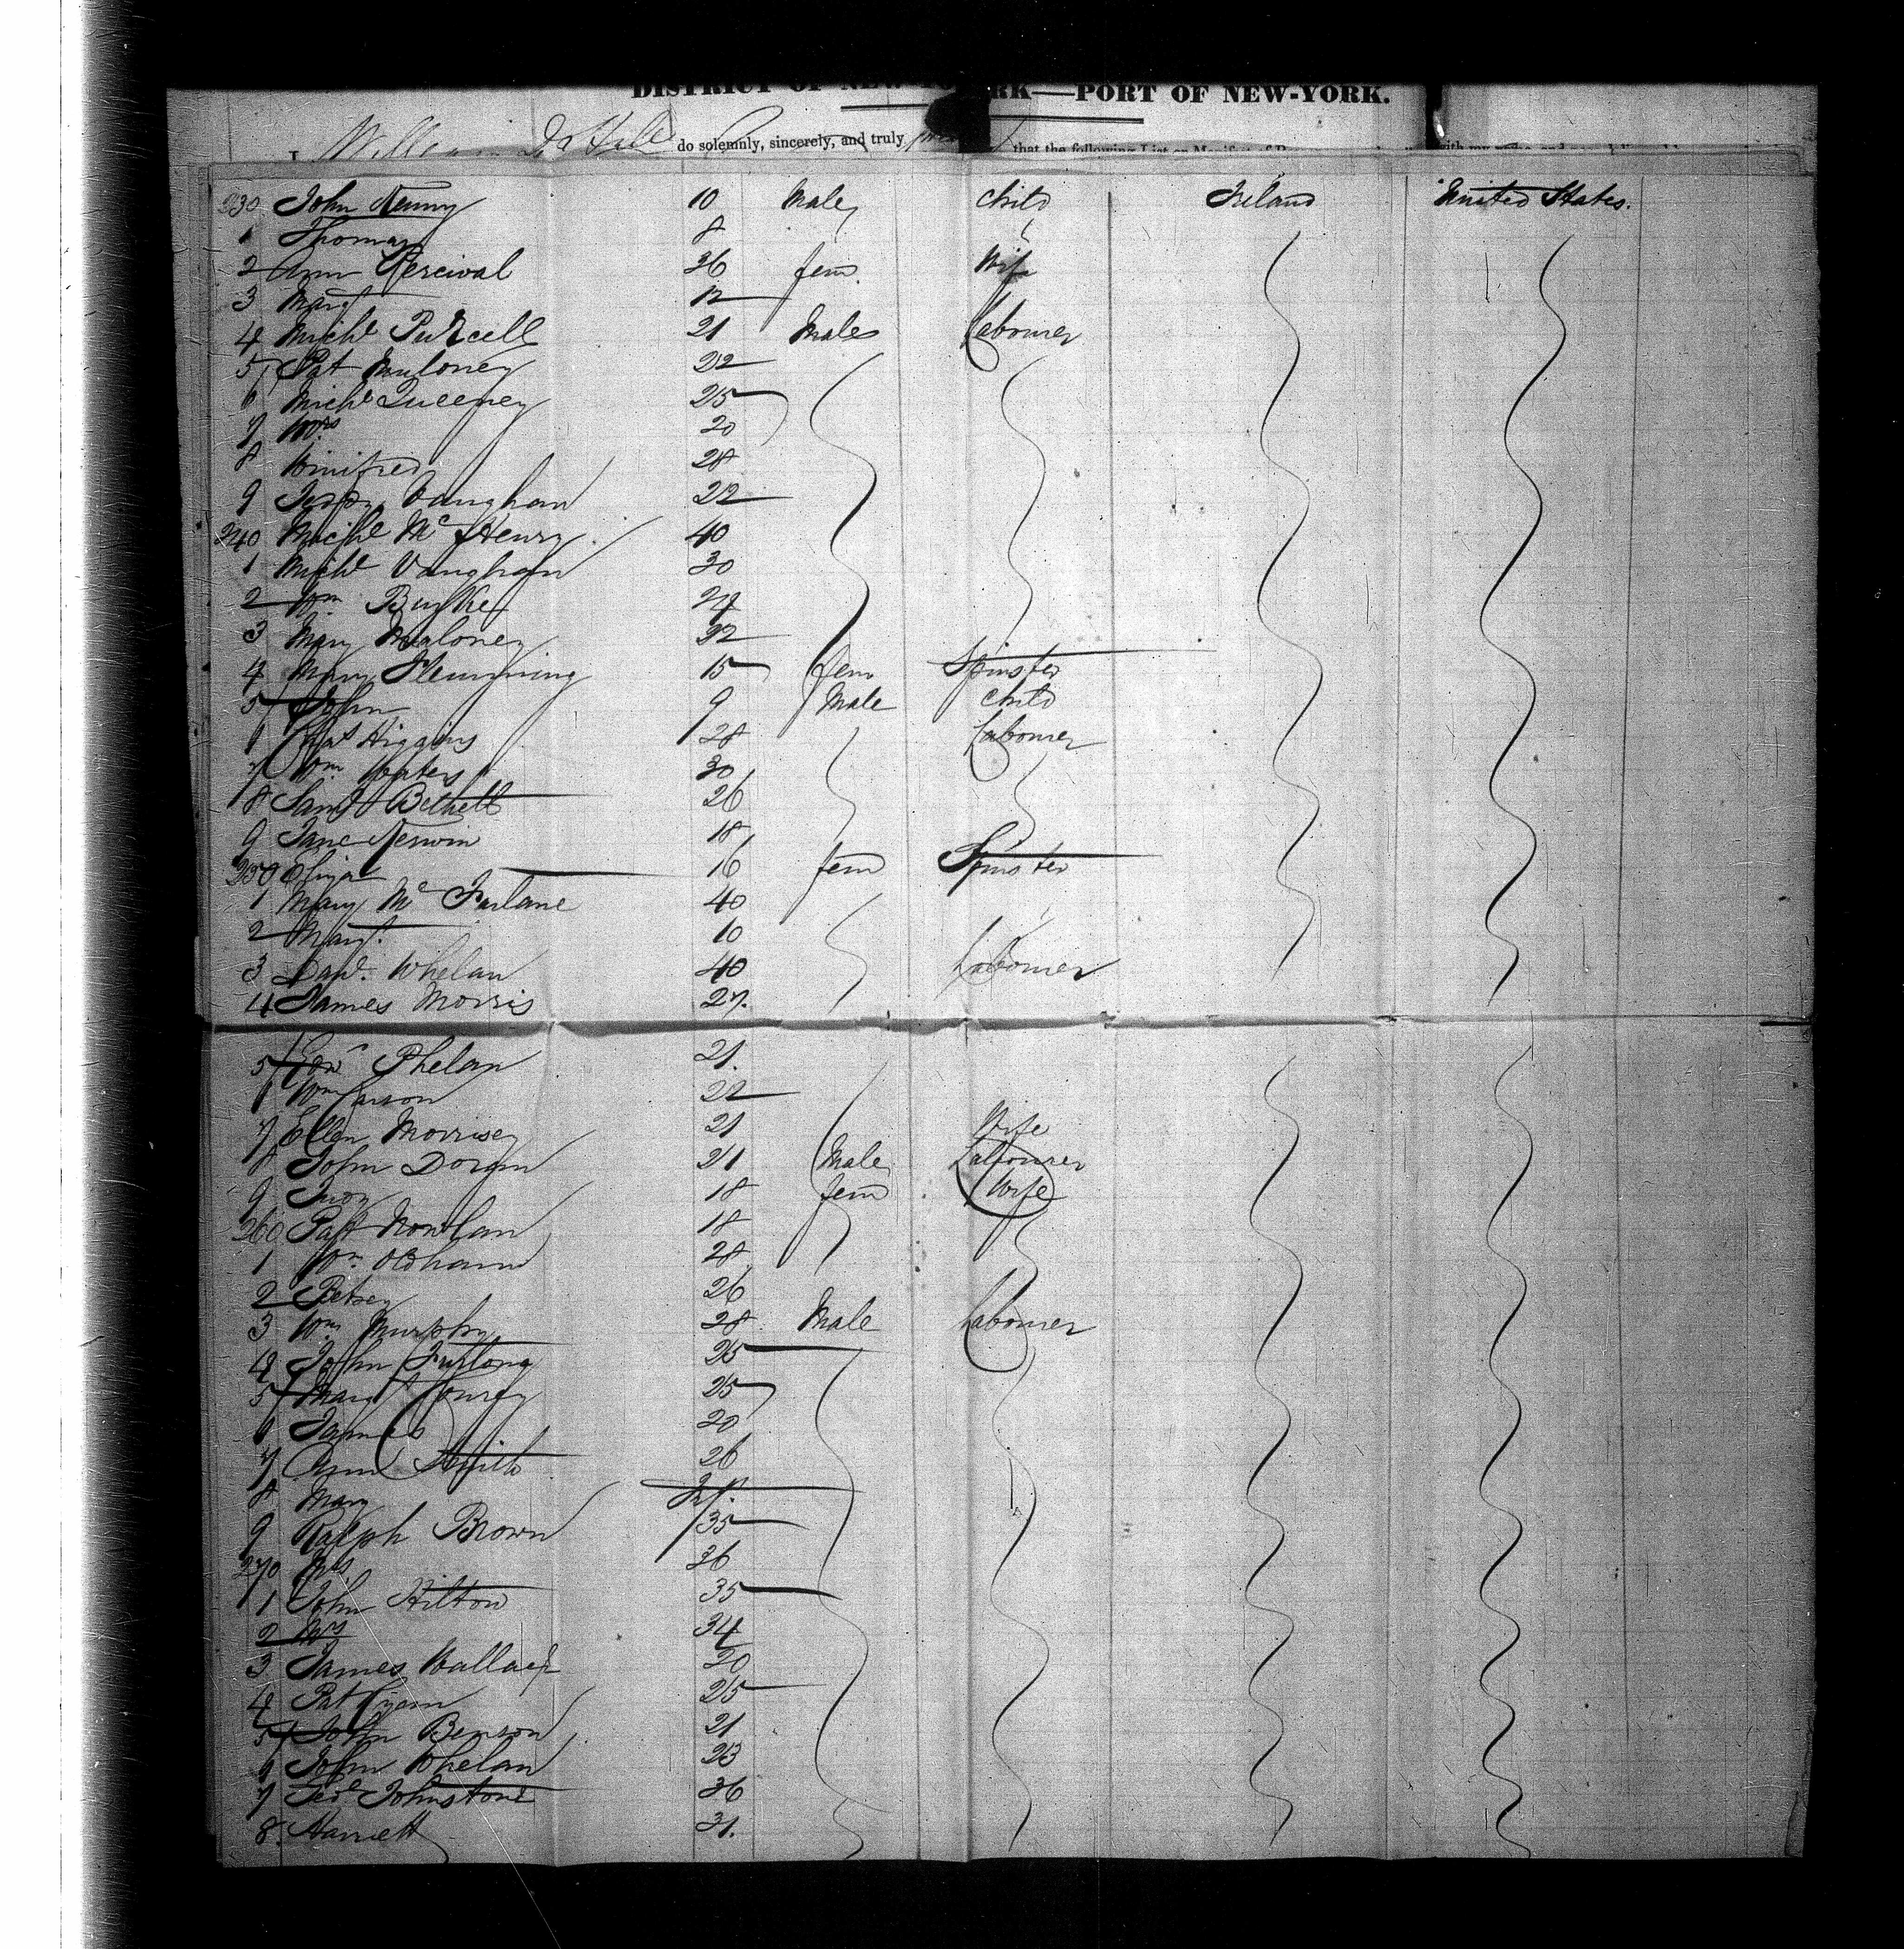 DISTRICT OF NEW-YORK—PORT OF NEW-YORK.
William do solemnly, sincerely, and truly that the following List or Manifest of
230 John Kenny 10 Male child Ireland United States.
1 Thomas 8
2 Ann Percival 36 fem Wife
3 Margt 12
4 Michl Purcell 21 Male Labourer
5 Pat Muloney 22
6 Michl Queeney 25
7 Mrs 20
8 Winifred 28
9 Vaughan 22
240 Michl McHenry 40
1 Michl Vaughan 30
2 Wm Burke 24
3 Mary Maloney 22
4 Mary Flemming 15 fem Spinster
5 John 9 Male child
6 Chas Higgins 28 Labourer
7 Wm Waters 30
8 Saml Bethell 26
9 Jane Kerwin 18
250 Eliza 16 fem Spinster
1 Mary Mc Farlane 40
2 Margt 10
3 Danl. Whelan 40 Labourer
4 James Morris 27.
5 Edwd Phelan 21.
6 Wm Carson 22
7 Ellen Morrisey 21 Wife
8 John Doran 21 Male Labourer
9 Judy 18 fem Wife
260 Patt Nowlan 18
1 Wm. Oldham 28
2 Betsey 26
3 Wm Murphy 28 Male Labourer
4 John Furlong 25
5 Margt 25
6 James 20
7 Ann Smith 26
8 Mary Inf.
9 Ralph Brown 35
270 Mrs 36
1 John Hilton 35
2 Mrs 34
3 James Wallace 20
4 Pat 25
5 John Benson 21
6 John Whelan 23
7 Johnstone 36
8. Harriett 31.